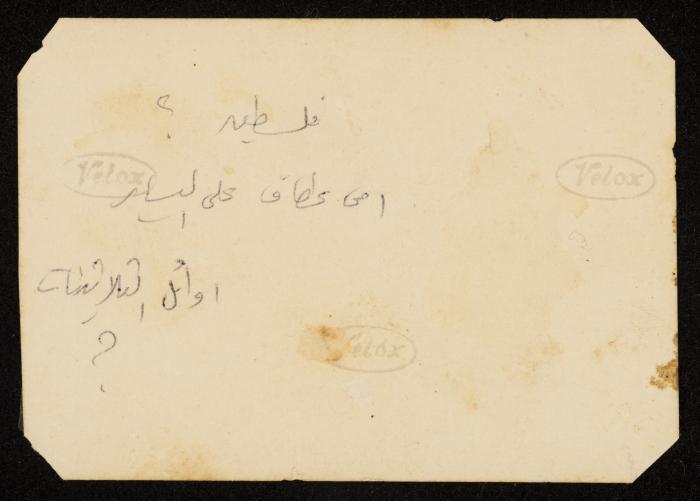 فلسطين ؟
Velox Velox
امي عطاف على اليسار
اوائل الثلاثينات
Velox
؟